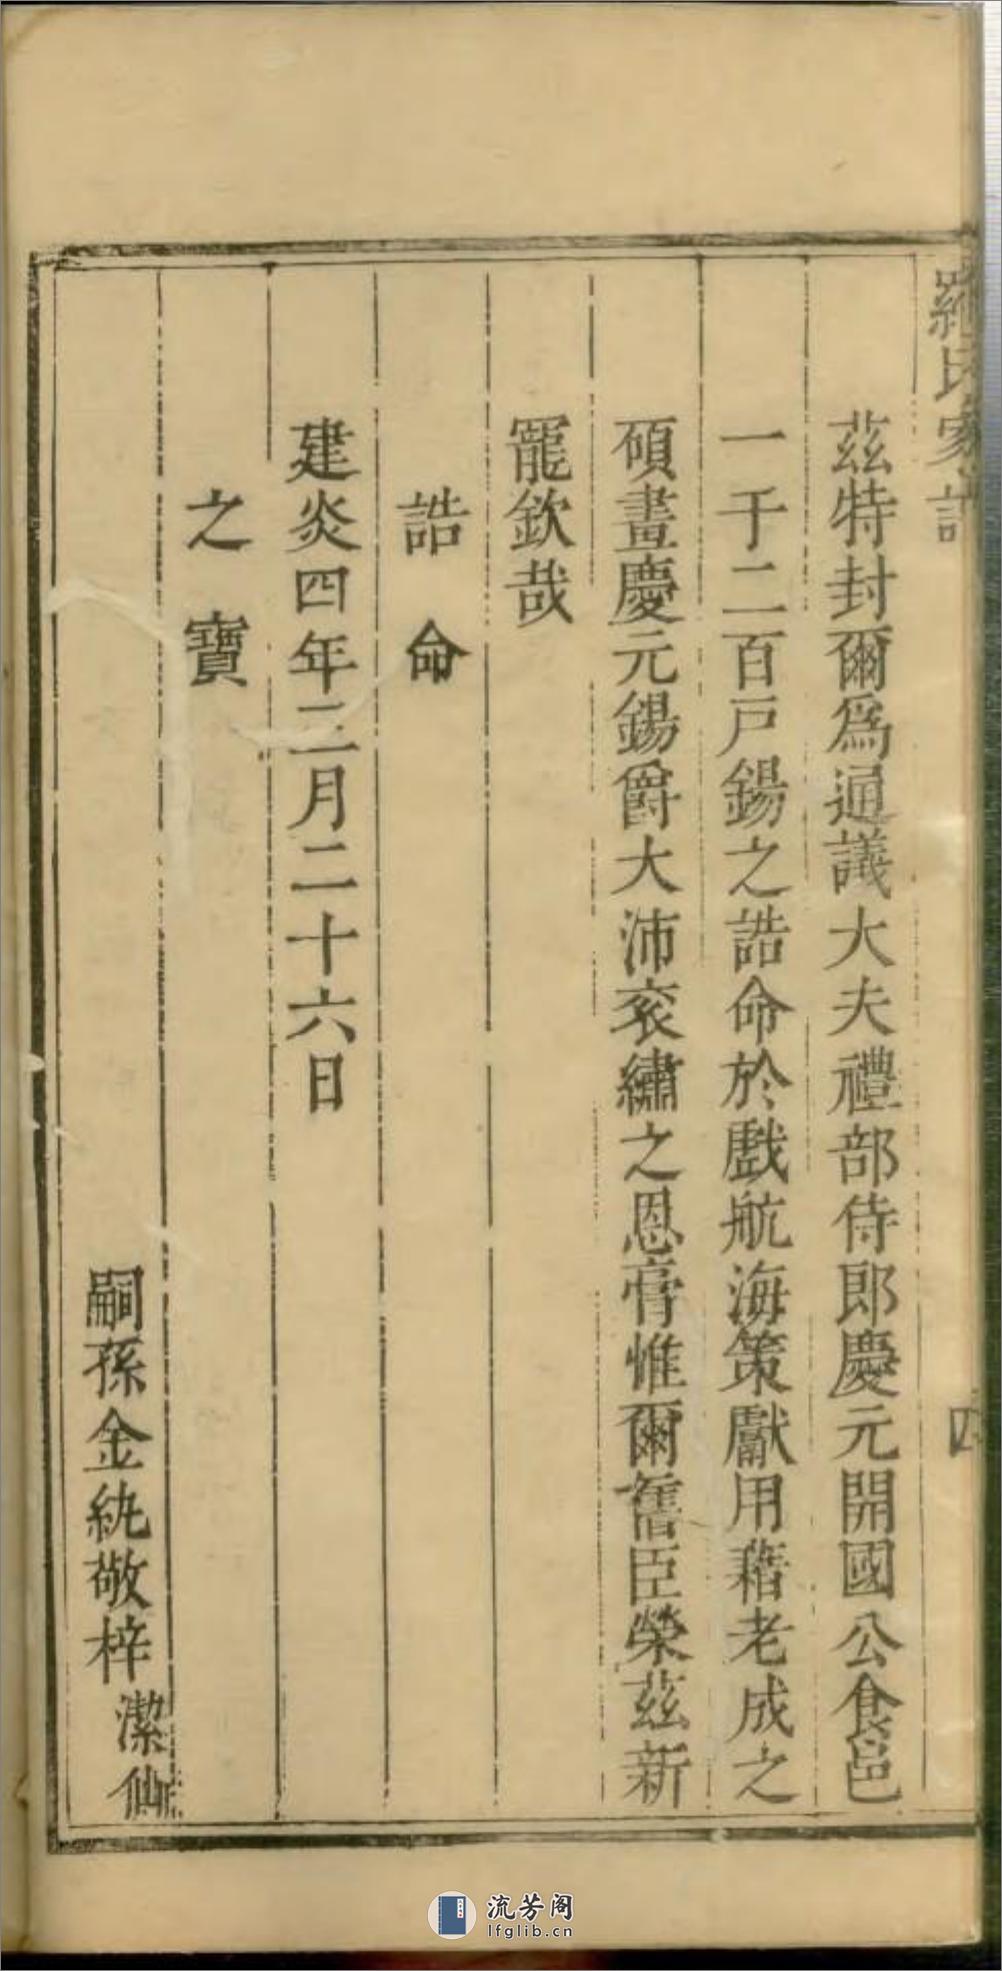 羅氏家譜
四
茲特封爾爲通議大夫禮部侍郎慶元開國公食邑
一千二百戸錫之誥命於戲航海策獻用藉老成之
碩畫慶元錫爵大沛衮繡之恩膏惟爾舊臣榮茲新
寵欽哉
誥命
建炎四年二月二十六日
之寶
嗣孫金紈敬梓
潔仙
流芳阁
lfglib.cn